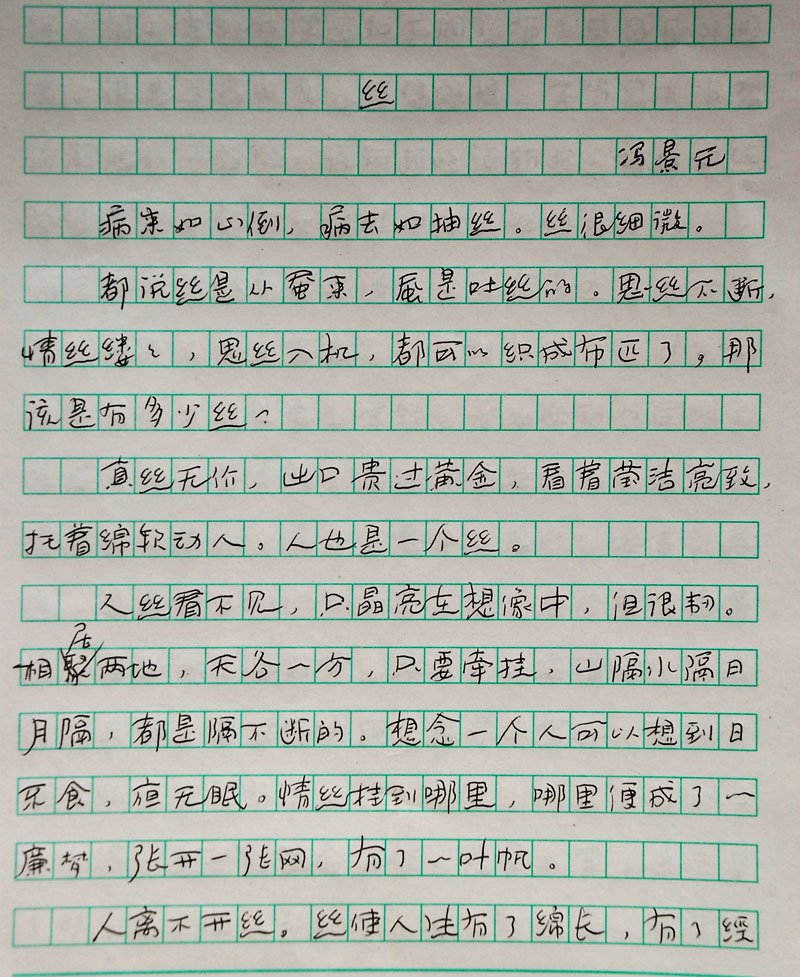 丝
冯景元
病来如山倒，病去如抽丝。丝很细微。
都说丝是从蚕来，蚕是吐丝的。思丝不断，
情丝缕々，思丝入机，都可以织成布匹了，那
该是有多少丝？
真丝无价，出口贵过黄金，看着莹洁亮致，
托着绵软动人。人也是一个丝。
人丝看不见，只晶亮在想像中，但很韧。
相居两地，天各一方，只要牵挂，山隔水隔日
月隔，都是隔不断的。想念一个人可以想到日
不食，夜无眠。情丝挂到哪里，哪里便成了一
廉梦，张开一张网，有了一叶帆。
人离不开丝。丝使人生有了绵长，有了經